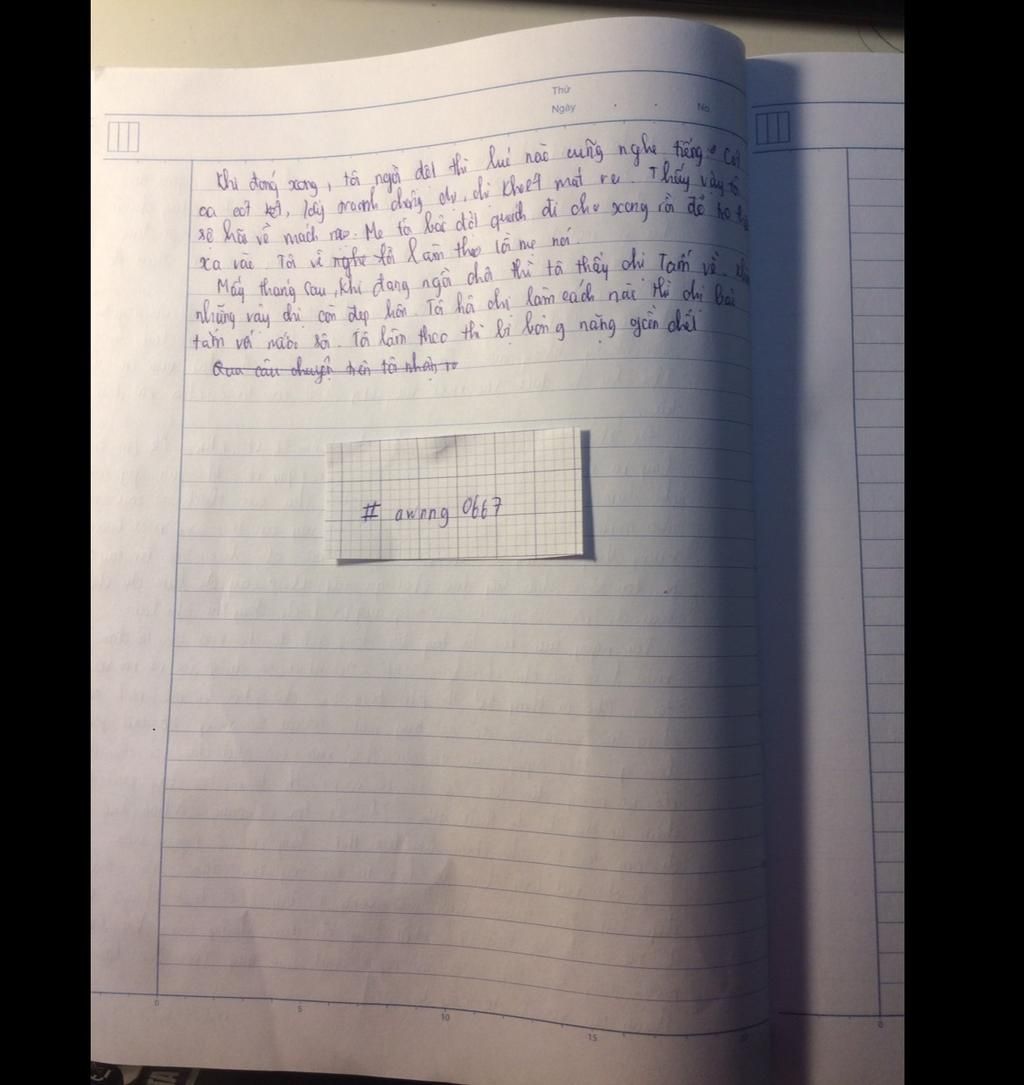 Thứ
Ngày No.
Khi đóng xong, tôi ngồi dệt thì lúc nào cũng nghe tiếng Cót
ca cót két, lấy tranh chồng chị, chị khoét mắt ra. Thấy vậy tô
sợ hãi về mách mẹ. Mẹ tôi bảo đốt quách đi cho xong rồi đổ tro
xa vào. Tôi về nghe tôi làm theo lời mẹ nói.
Mấy tháng sau, khi đang ngồi chơi thì tôi thấy chị Tấm về.
những vậy chị còn đẹp hơn. Tôi hỏi chị làm cách nào thì chị bảo
tắm với nước sôi. Tôi làm theo thì bị bỏng nặng gần chết
Qua câu chuyện trên tôi nhận
# awnng 0667
0 5 10 15 0